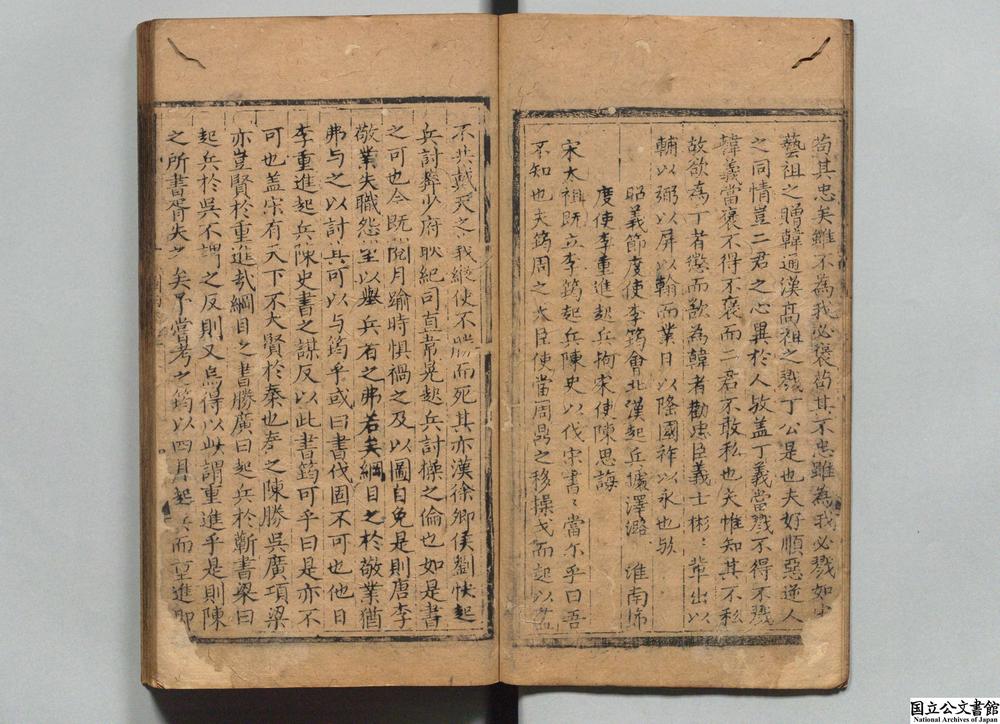 苟其忠矣雖不為我必褒苟其不忠雖為我必戮如宋
藝祖之贈韓通漢高祖之戮丁公是也夫好順惡逆人
之同情豈二君之心異於人㢤盖丁義當戮不得不戮
韓義當褒不得不褒而二君不敢私也夫惟知其不私
故欲為丁者懲而歆為韓者勸忠臣義士彬〻輩出以
輔以弼以屏以翰而業日以隆國祚以永也欤
昭義節度使李筠會北漢起兵據澤潞 淮南節
度使李重進起兵拘宋使陳思誨
宋太祖既立李筠起兵陳史以伐宋書 當尓乎曰吾
不知也夫筠周之大臣使當周鼎之移操戈而起以蓋
不共戴天之 我縱使不勝而死其亦漢徐卿侯劉快起
兵討莽少府耿紀司直韋晃起兵討操之倫也如是書
之可也今既閱月踰時惧禍之及以圖自免是則唐李
敬業失職怨望以 兵者之弗若矣綱目之於敬業猶
弗与之以討 其可以与筠乎或曰書伐固不可也他日
李重進起兵陳史書之謀反以此書筠可乎曰是亦不
可也盖宋有天下不大賢於秦也秦之陳勝吳廣項梁
亦豈賢於重進哉綱目之書勝廣曰起兵於蘄書梁曰
起兵於吳不謂之反則又烏得以此謂重進乎是則陳
之所書胥失之矣予嘗考之筠以四月起兵而重進即
国立公文書館
National Archives of Japan